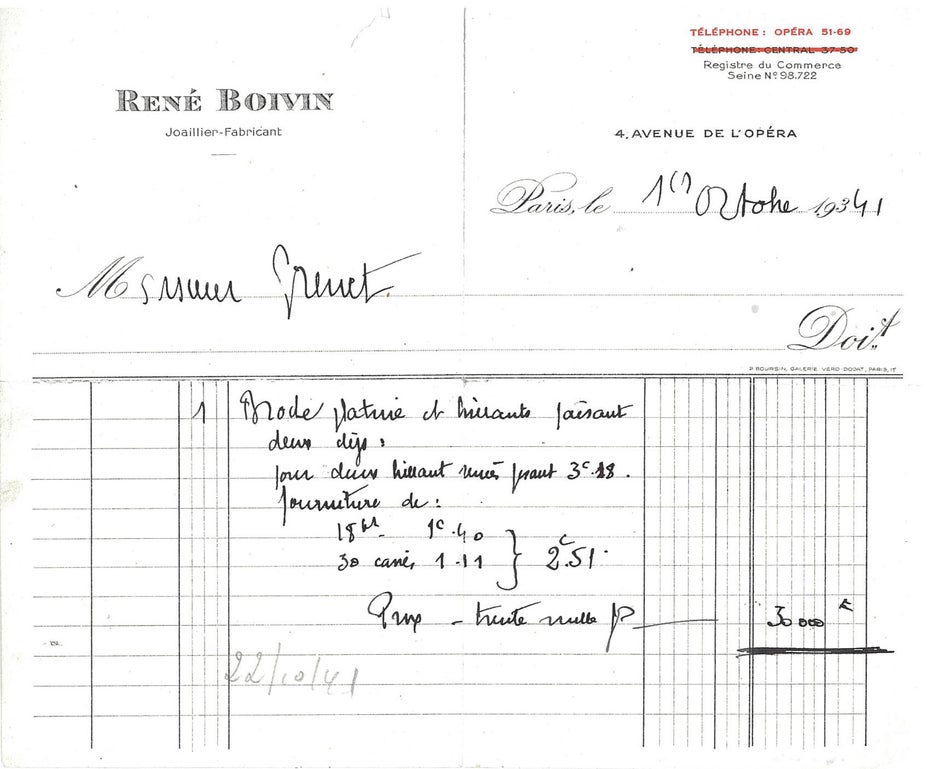 TÉLÉPHONE : OPÉRA 51-69
TÉLÉPHONE : CENTRAL 37-50
Registre du Commerce
Seine Nº 98.722
RENÉ BOIVIN
Joaillier-Fabricant
4, AVENUE DE L'OPÉRA
Paris, le 1er Octobre 1941
Monsieur Grenet.
Doit
P. BOURSIN, GALERIE VERO DODAT, PARIS, 1
1 Broche platine et brillants faisant
deux clips :
pour deux brillant pesant 3c.18.
fourniture de :
18 bt 1c.40
30 carrés 1.11 2c.51
Prix - trente mille f 30000 F
22/10/41